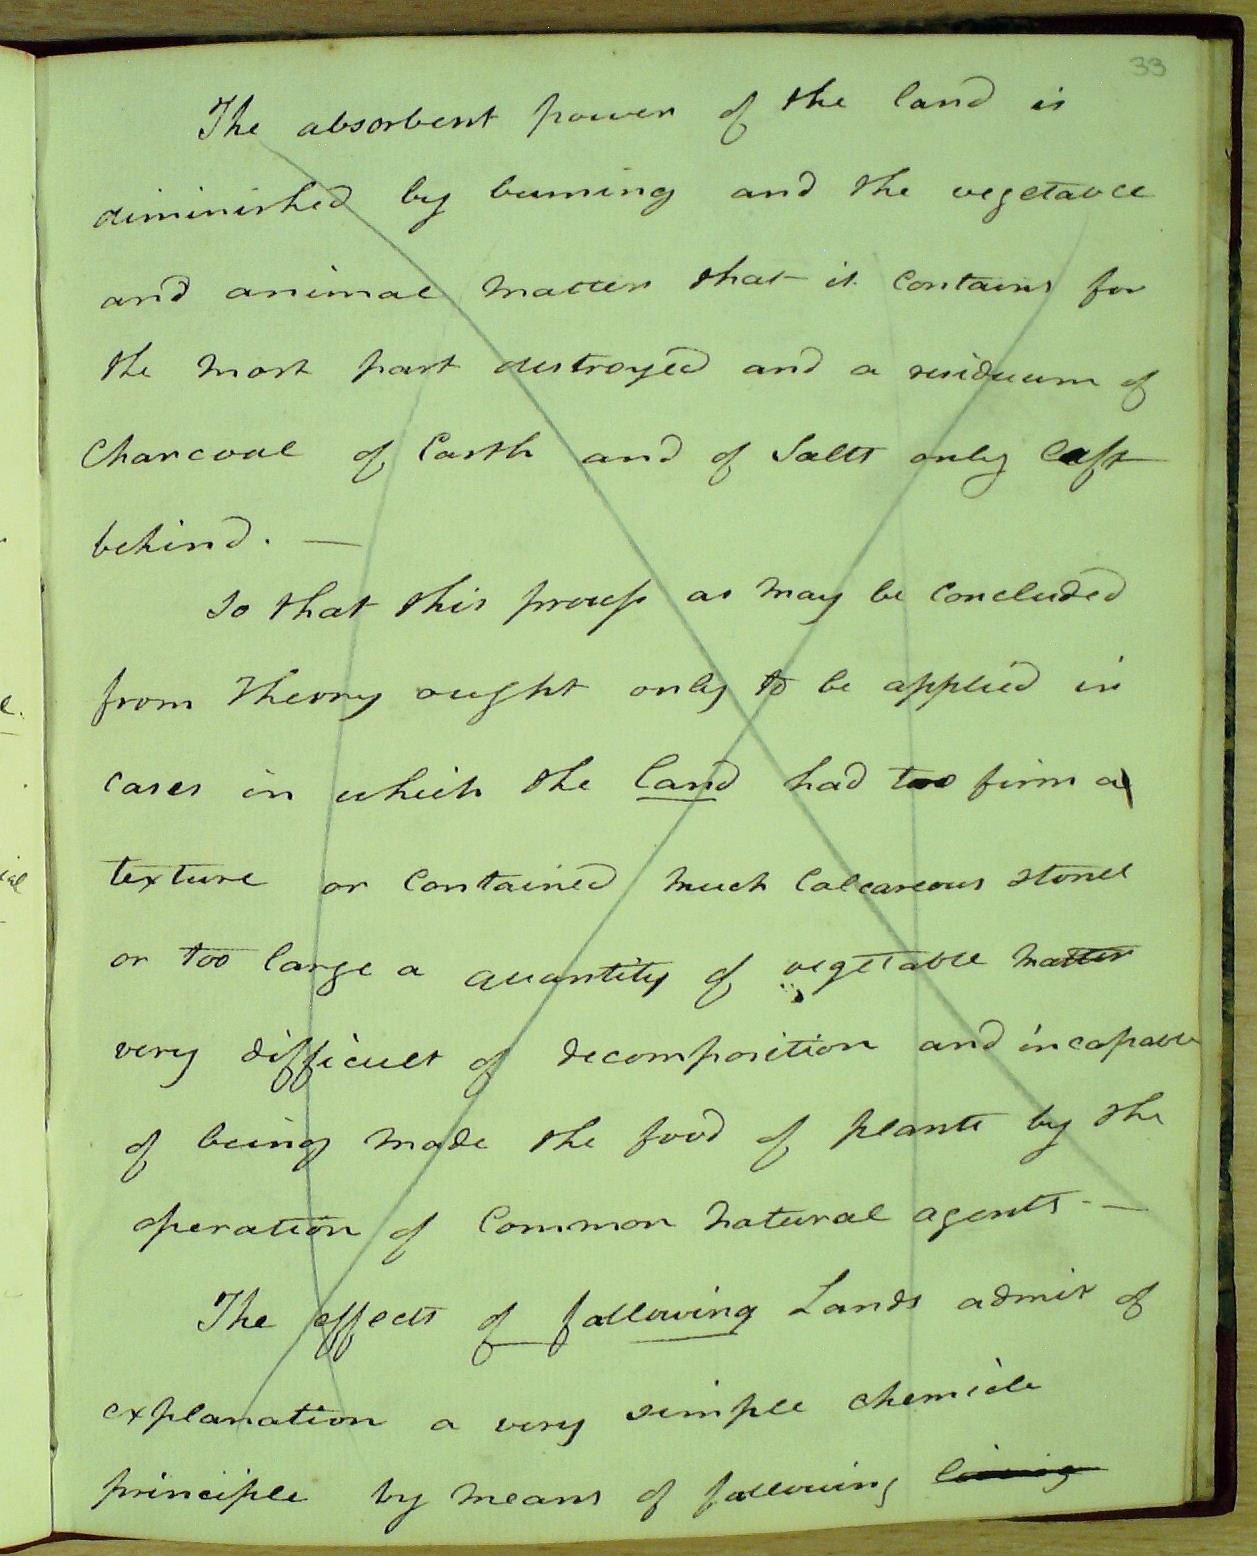 33
The absorbent power of the land is
diminished by burning and the vegetable
and animal matter that it contains for
the most part destroyed and a residuum of
Charcoal of Earth and of Salts only left
behind. —
So that this process as may be concluded
from Theory ought only to be applied in
cases in which the land had too firm a
texture or contained much Calcareous stones
or too large a quantity of vegetable matter
very difficult of decomposition and incapable
of being made the food of plants by the
operation of Common natural agents. —
The effects of fallowing Lands admit of
explanation a very simple chemicle
principle by means of fallowing